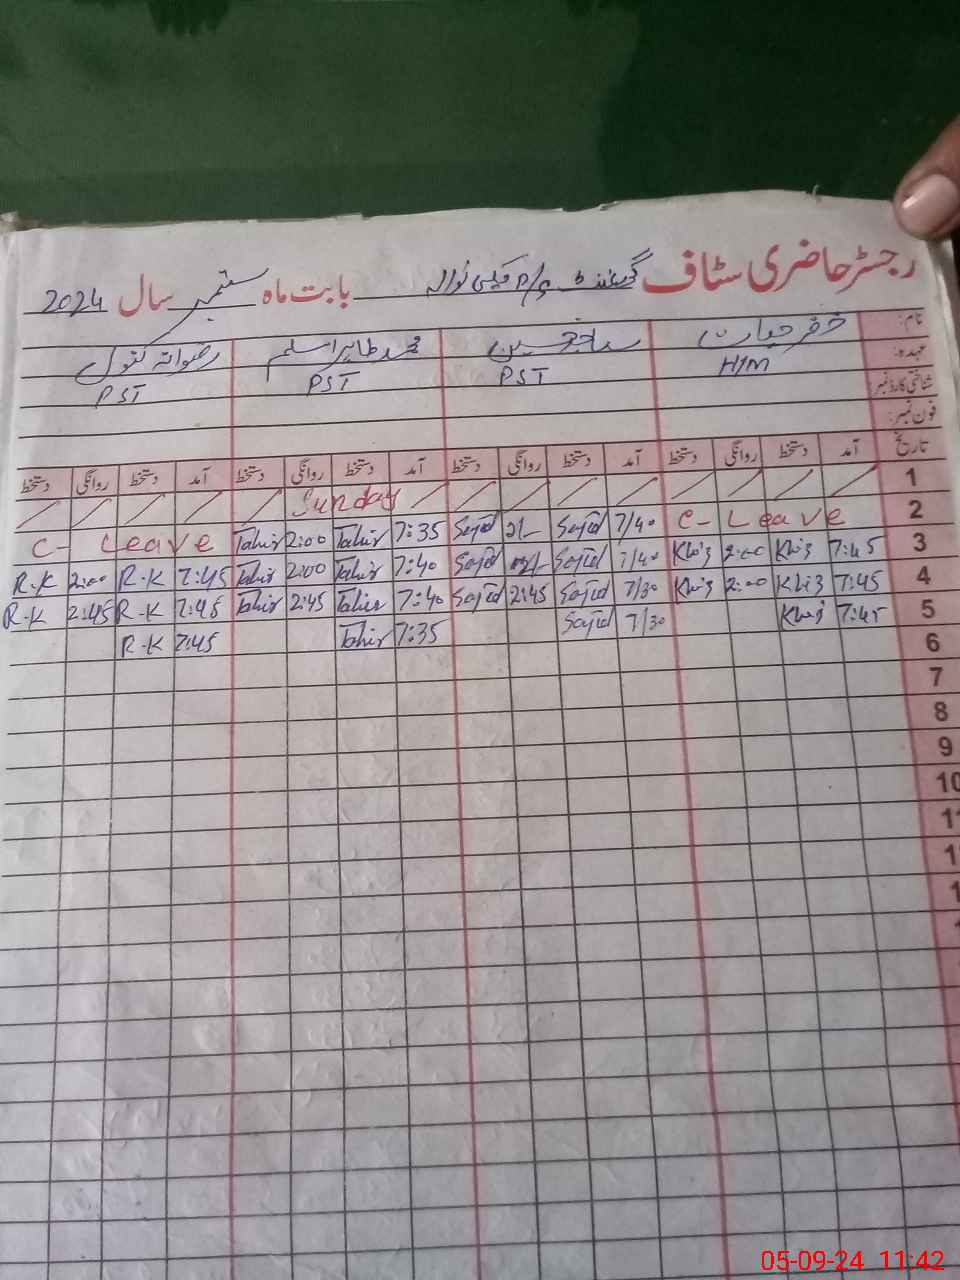 رجسٹر حاضری سٹاف گورنمنٹ P/S بابت ماہ ستمبر سال 2024
نام: خضر حیات ساجد حسین محمد طاہر اسلم رضوانہ کنول
عہدہ: H/M PST PST PST
شناختی کارڈ نمبر:
فون نمبر:
تاریخ آمد دستخط روانگی دستخط آمد دستخط روانگی دستخط آمد دستخط روانگی دستخط آمد دستخط روانگی دستخط
1 Sunday
2 C- Leave 7/40 Sajid 2/- Sajid 7:35 Tahir 2:00 Tahir C- Leave
3 7:45 Khiz 2:00 Khiz 7/40 Sajid Sajid 7:40 Tahir 2:00 Tahir 7:45 R.K 2:00 R.K
4 7:45 Khiz 2:00 Khiz 7/30 Sajid 2:45 Sajid 7:40 Tahir 2:45 Tahir 7:45 R.K 2:45 R.K
5 7:45 Khiz 7/30 Sajid 7:35 Tahir 7:45 R.K
6
7
8
9
10
05-09-24 11:42